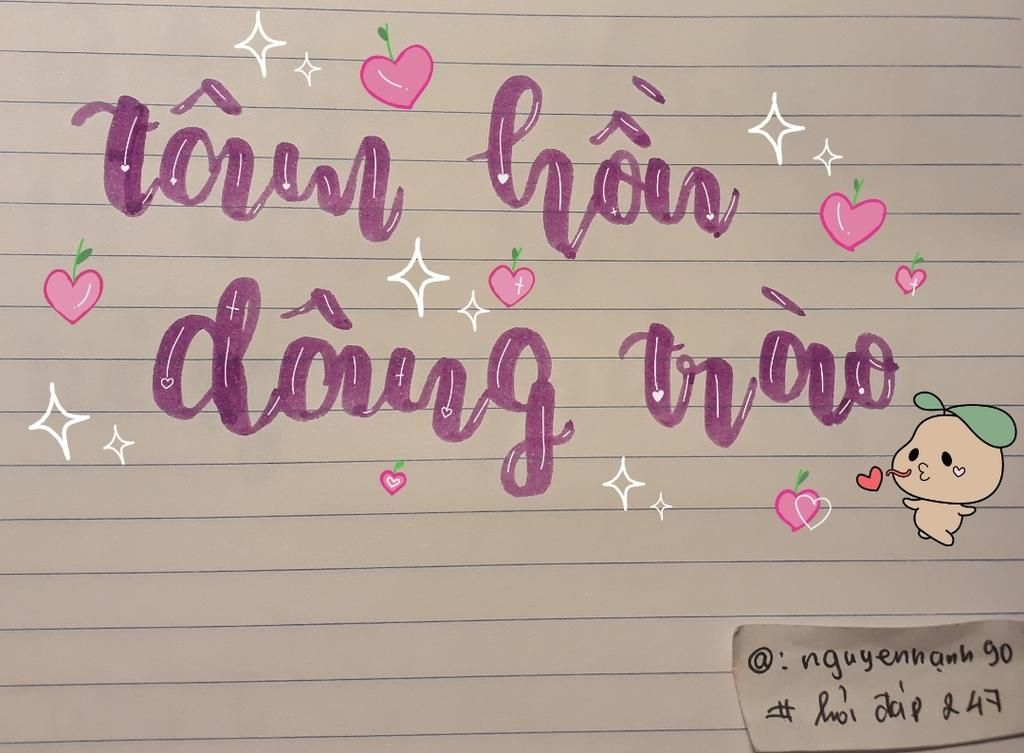 tâm hồn
dâng trào
@: nguyenhạnh 90
# hỏi đáp 247